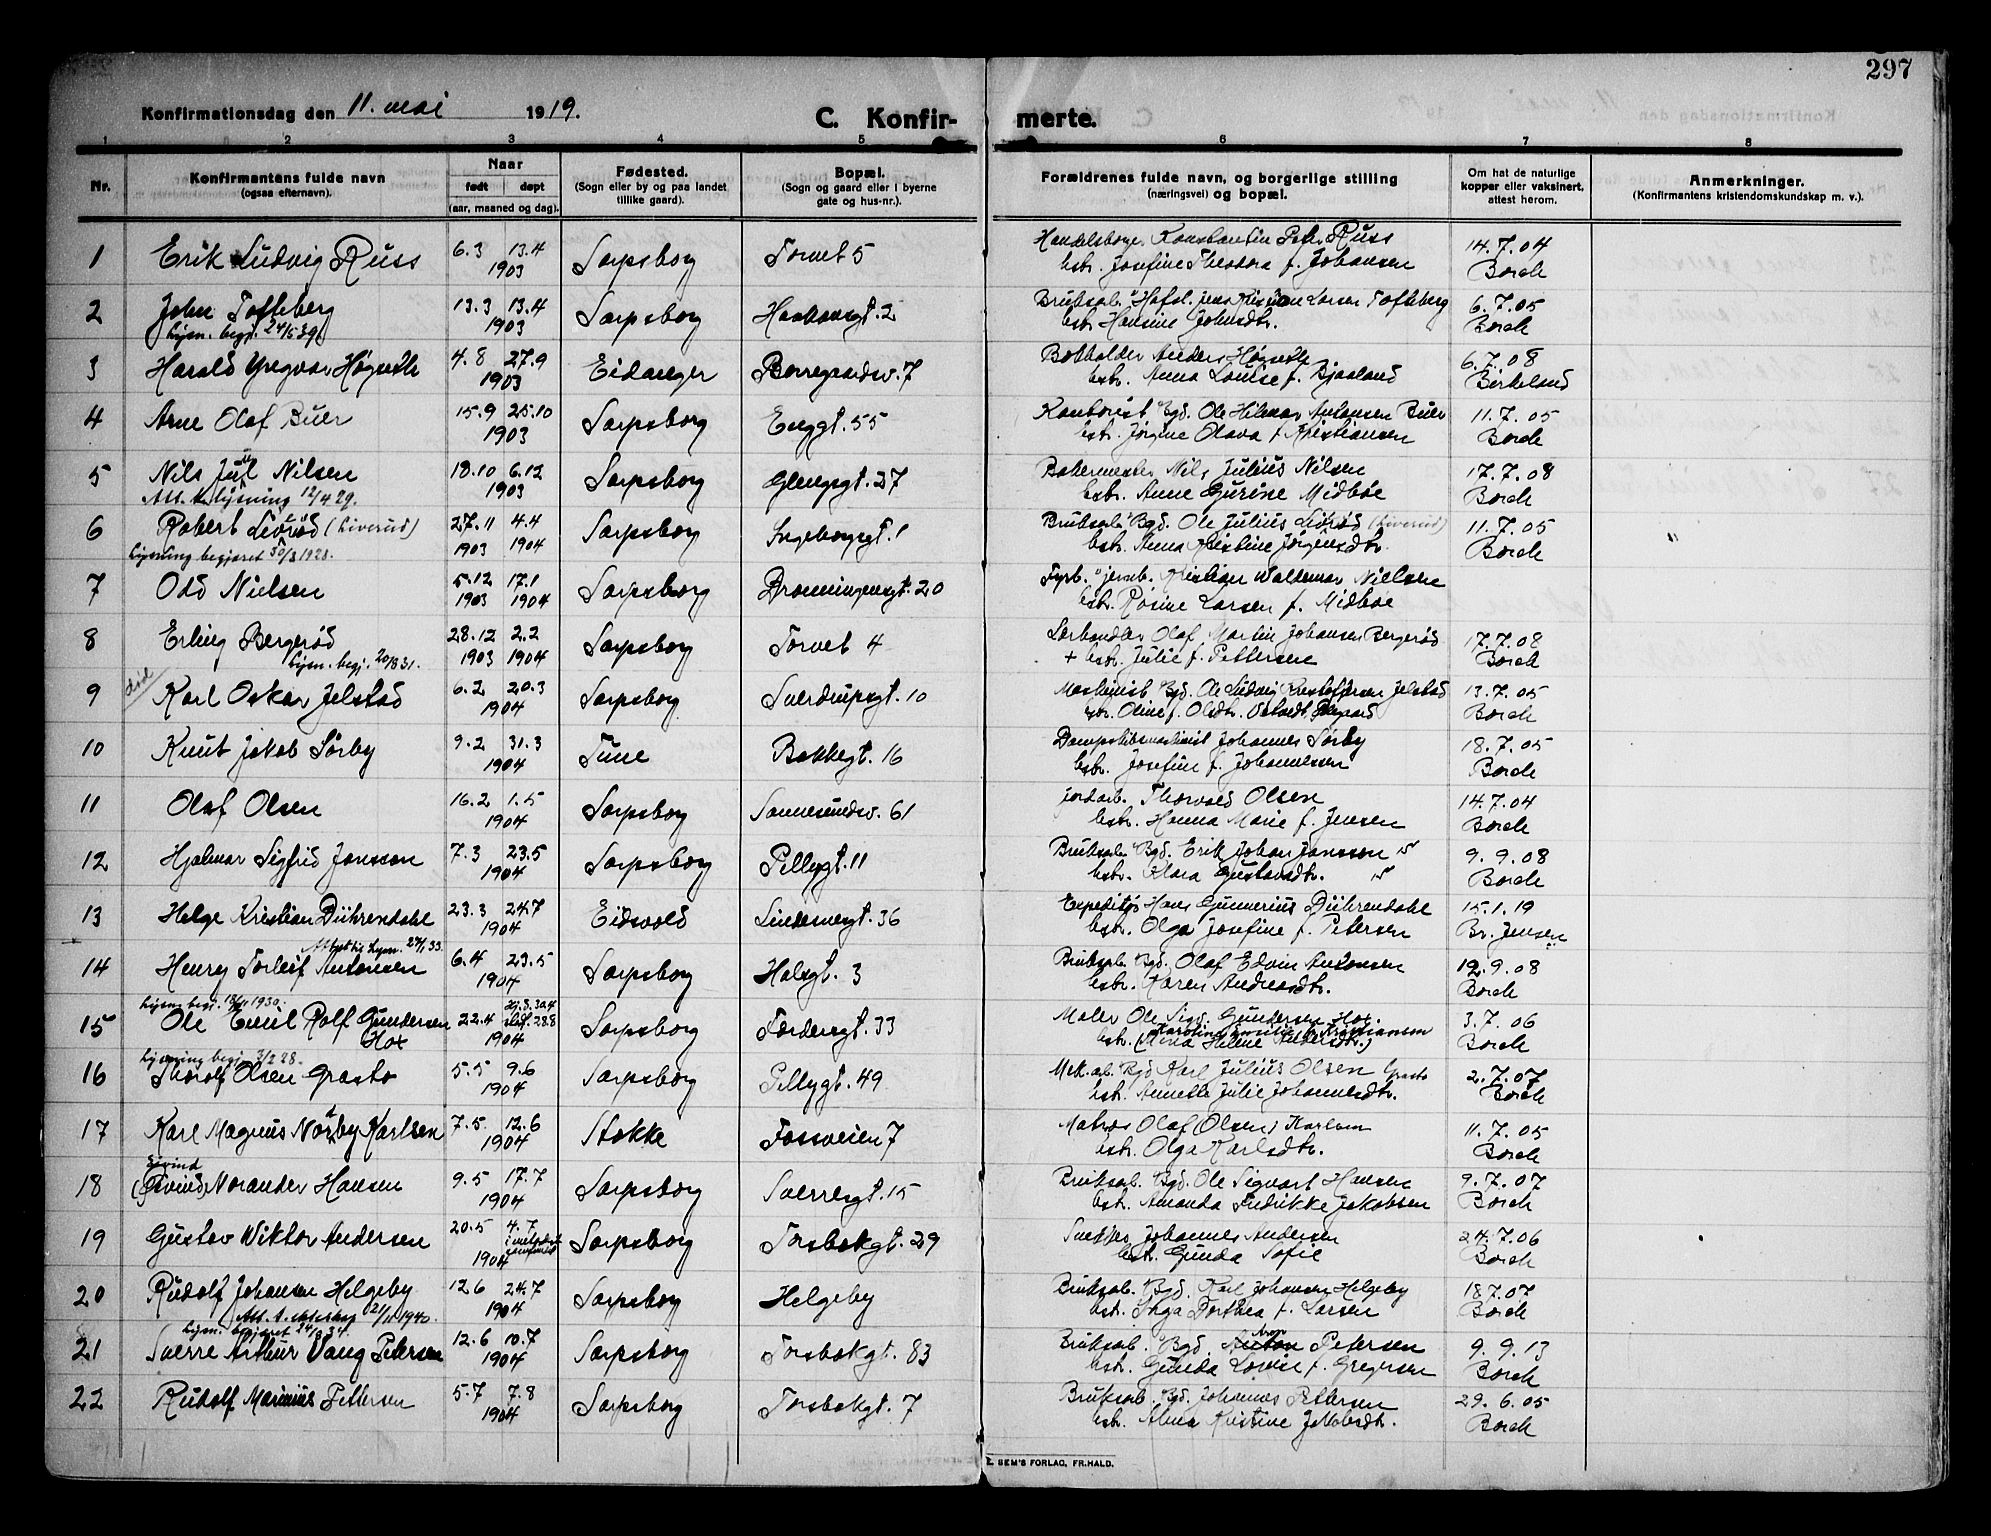 297
Konfirmationsdag den 11. mai 1919.
C. Konfirmerte.
1 2 3 4 5 6 7 8
Nr.
Konfirmantens fulde navn
(ogsaa efternavn).
Naar
født døpt
(aar, maaned og dag).
Fødested.
(Sogn eller by og paa landet
tillike gaard).
Bopæl.
(Sogn og gaard eller i byerne
gate og hus-nr.).
Forældrenes fulde navn, og borgerlige stilling
(næringsvei) og bopæl.
Om hat de naturlige
kopper eller vaksinert,
attest herom.
Anmerkninger.
(Konfirmantens kristendomskundskap m. v.).
1 Erik Ludvig Russ 6.3 13.4 Sarpsborg Torvet 5 Konstantin Peter Russ 14.7.04
1903 hstr. Josefine Theodora f. Johansen Borch
2 John Tofteberg 13.3 13.4 Sarpsborg Haakonsgt. 2 Larsen Tofteberg 6.7.05
Lysn. begj. 24/5 39. 1903 hstr. Hansine Johnsdtr. Borch
3 Harald Yngvar Høgseth 4.8 27.9 Eidanger Borregaardsv. 7 Bokholder Anders Høgseth 6.7.08
1903 hstr. Anna Louise f. Bjaaland Birkeland
4 Arne Olaf Buer 15.9 25.10 Sarpsborg Enggt. 55 Kontorist Bgd. Ole Hilmar Antonsen Buer 11.7.05
1903 hstr. Jørgine Olava f. Kristiansen Borch
5 Nils Jul Nilsen 18.10 6.12 Sarpsborg Glengsgt. 27 Bakermester Nils Julius Nilsen 17.7.08
Att. t. lysning 12/4 29. 1903 hstr. Anne Gurine Midbøe Borch
6 Robert Liørød (Liverud) 27.11 4.4 Sarpsborg Ingeborgsgt. 1 Bruksarb. Bgd. Ole Julius Liørød (Liverud) 11.7.05
Lysning begjæret 30/3 1928. 1903 1904 hstr. Anna Kristine Jørgensdtr. Borch
7 Odd Nielsen 5.12 17.1 Sarpsborg Dronningensgt. 20 Fyrb. v/ jernb. Kristian Waldemar Nielsen
1903 1904 hstr. Rosine Larsen f. Midbøe
8 Erling Bergerød 28.12 2.2 Sarpsborg Torvet 4 Olaf Martin Johansen Bergerød 17.7.08
Lysn. begj. 20/8 31. 1903 1904 + hstr. Julie f. Pettersen Borch
død
9 Karl Oskar Jelstad 6.2 20.3 Sarpsborg Sverdrupsgt. 10 Maskinist Bgd. Ole Ludvig Kristoffersen Jelstad 13.7.05
1904 hstr. Oline f. Olsdtr. Borch
10 Knut Jakob Sørby 9.2 31.3 Tune Bakkegt. 16 Dampskibsmaskinist Johannes Sørby 18.7.05
1904 hstr. Josefine f. Johannessen Borch
11 Olaf Olsen 16.2 1.5 Sarpsborg Sannesundsv. 61 jordarb. Thorvald Olsen 14.7.04
1904 hstr. Hanna Marie f. Jensen Borch
12 Hjalmar Sigfrid Jansson 7.3 23.5 Sarpsborg Pellygt. 11 Bruksarb. Bgd. Erik Johan Jansson 9.9.08
1904 hstr. Klara Gustavsdtr. Borch
13 Helge Kristian Dührendahl 23.3 24.7 Eidsvold Lindemansgt. 36 Expeditør Hans Gunnerius Dührendahl 15.1.19
1904 hstr. Olga Josefine f. Petersen Br. Jensen
Attest til Lysn. 24/1 33.
14 Henry Torleif Antonsen 6.4 23.5 Sarpsborg Halsgt. 3 Bruksarb. Bgd. Olaf Edvin Antonsen 12.9.08
1904 hstr. Karen Andreasdtr. Borch
Lysn. begj. 18/11 1930.
15 Ole Emil Rolf Gundersen 22.4 Hj. d. 30.4 Sarpsborg Færdersgt. 33 Maler Ole Sigv. Gundersen Hox. 3.7.06
Hox 1904 stadf. 28.8 hstr. (Maria Helene Andersdtr.) Karoline Emilie f. Kristiansen Borch
Lysning begj. 3/2 28.
16 Thorolf Olsen Grastø 5.5 9.6 Sarpsborg Pellygt. 49 Mek. arb. Bgd Karl Julius Olsen Grastø 2.7.07
1904 hstr. Annette Julie Johannesdtr. Borch
17 Karl Magnus Nordby Karlsen 7.5. 12.6 Stokke Fossveien 7 Matros Olaf Olsen, Karlsen 11.7.05
1904 hstr. Olga Karlsdtr. Borch
Eivind
18 (Øivind) Norander Hansen 9.5 17.7 Sarpsborg Sverresgt. 15 Bruksarb. Bgd. Ole Sigvart Hansen 9.7.07
1904 hstr. Amanda Fredrikke Jakobsen Borch
19 Gustav Wiktor Andersen 20.5 4.7 Sarpsborg Torsbakgt. 29 Johannes Andersen 24.7.06
1904 hstr. Gunda Sofie Borch
20 Rudolf Johansen Helgeby 12.6 24.7 Sarpsborg Helgeby Bruksarb. Bgd. Karl Johansen Helgeby 18.7.07
Att. t. ekteskap 21/11 1940. 1904 hstr. Inga Dorthea f. Larsen Borch
Lysn. begjæret 24/3 34.
21 Sverre Arthur Vang Petersen 12.6 10.7 Sarpsborg Torsbakgt. 83 Bruksarb. Bgd. Anton Aron Petersen 9.9.13
1904 hstr. Gunda Lovise f. Gregersen Borch
22 Rudolf Marinius Pettersen 5.7 7.8 Sarpsborg Torsbakgt. 7 Bruksarb. Bgd. Johannes Pettersen 29.6.05
1904 hstr. Alma Kristine Jakobsdtr. Borch
E. SEM'S FORLAG, FR.HALD.